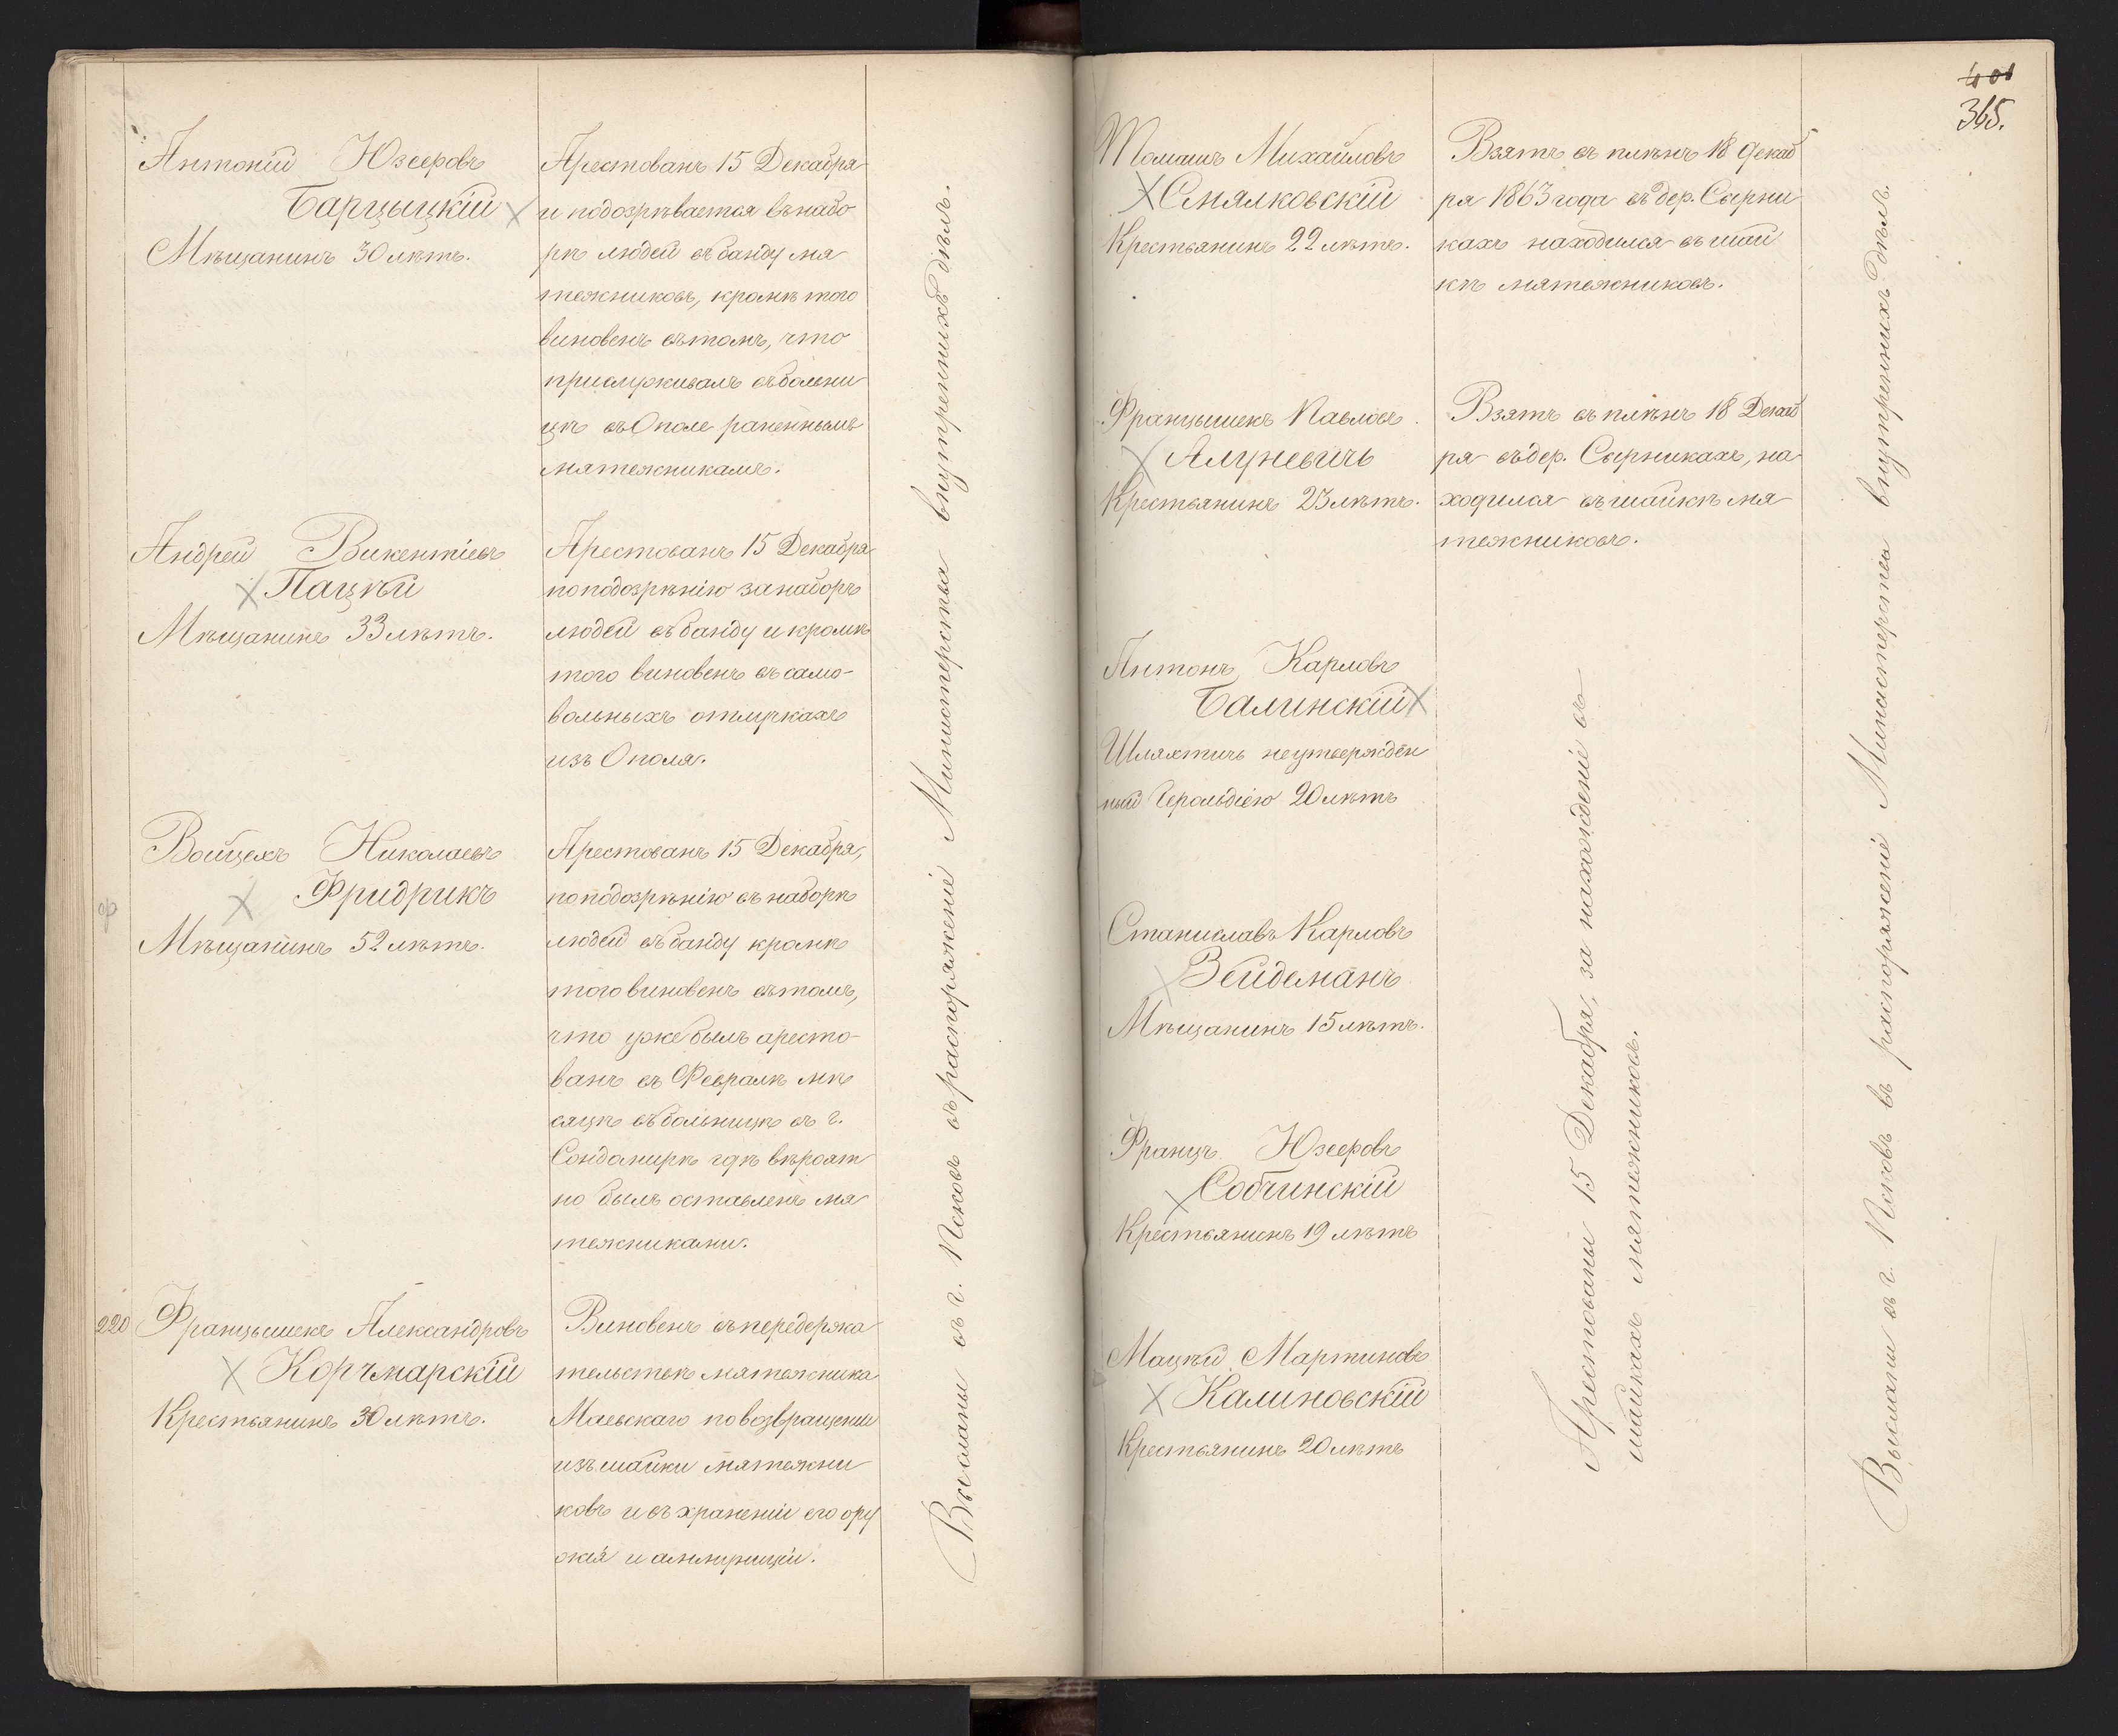 Антоній Юзефовъ
Барцыцкій
Мѣщанинъ 30 лѣтъ.
Арестованъ 15 Декабря
и подозрѣвается въ набо
рѣ людей въ банду мя
тежниковъ, кромѣ того
виновенъ въ томъ, что
прислуживалъ въ больни
цѣ въ Ополе раненнымъ
мятежникамъ.
Андрей Викентіевъ
Пацкій
Мѣщанинъ 33 лѣтъ.
Арестованъ 15 Декабря
по подозрѣнію за наборъ
людей въ банду и кромѣ
того виновенъ въ само-
вольныхъ отлучкахъ
изъ Ополя.
Войцехъ Николаевъ
Фридрикъ
Мѣщанинъ 52 лѣтъ.
Арестованъ 15 Декабря,
по подозрѣнію въ наборѣ
людей въ банду кромѣ
того виновенъ въ томъ,
что уже былъ аресто-
ванъ въ Февралѣ мѣ
сяцѣ въ больницѣ въ г.
Сондомирѣ гдѣ вѣроят
но былъ оставленъ мя
тежниками.
220
Францышекъ Александровъ
Корчмарскій
Крестьянинъ 30 лѣтъ.
Виновенъ въ передержа
тельствѣ мятежника
Маевскаго по возвращеніи
изъ шайки мятежни
ковъ и въ храненіи его ору
жія и аммуниціи.
Высланы въ г. Псковъ въ распоряженіе Министерства внутреннихъ дѣлъ.
401
365.
Томашъ Михайловъ
Смялковскій
Крестьянинъ 22 лѣтъ.
Взятъ въ плѣнъ 18 декаб
ря 1863 года въ дер. Сырни
кахъ находился въ шай
кѣ мятежниковъ.
Францышекъ Павловъ
Алуневичъ
Крестьянинъ 23 лѣтъ.
Взятъ въ плѣнъ 18 Декаб
ря въ дер. Сырникахъ, на
ходился въ шайкѣ мя
тежниковъ.
Антонъ Карловъ
Балинскій
Шляхтичъ неутвержден
ный Герольдіею 20 лѣтъ
Станиславъ Карловъ
Вейдеманъ
Мѣщанинъ 15 лѣтъ.
Францъ Юзефовъ
Собчинскій
Крестьянинъ 19 лѣтъ
Мацѣй Мартиновъ
Калиновскій
Крестьянинъ 20 лѣтъ
Арестованы 15 Декабря, за нахожденіе въ
шайкахъ мятежниковъ.
Высланы въ г. Псковъ въ распоряженіе Министерства внутреннихъ дѣлъ.